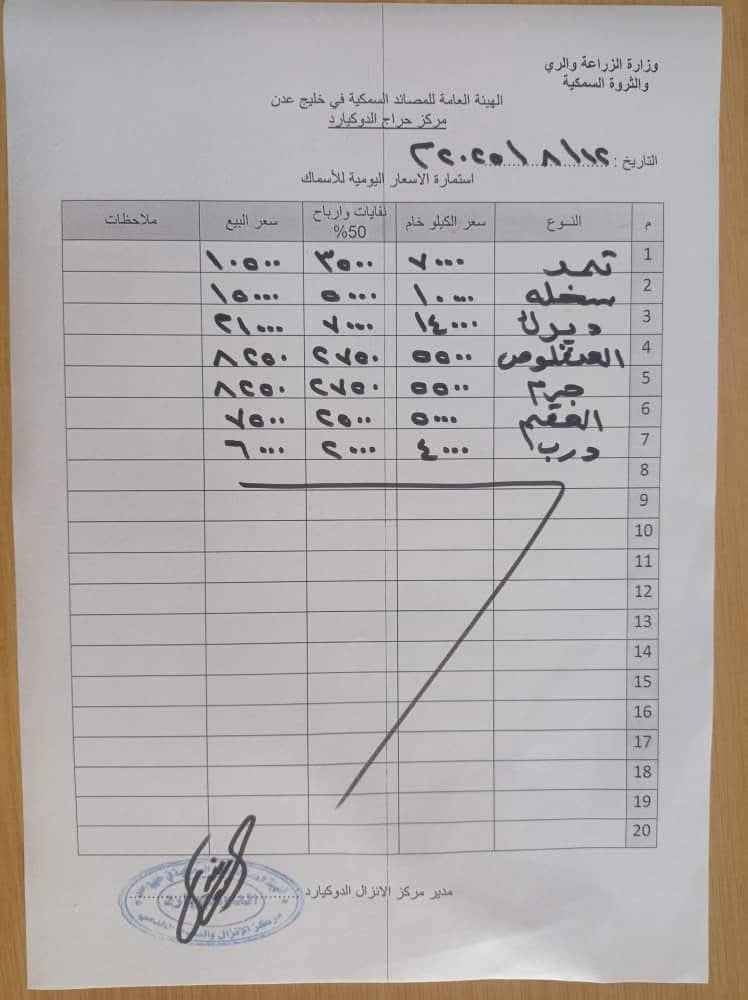 وزارة الزراعة والري
والثروة السمكية
الهيئة العامة للمصائد السمكية في خليج عدن
مركز حراج الدوكيارد
التاريخ : ١٢/ ٨ /٢٠٢٥
استمارة الاسعار اليومية للأسماك
م النوع سعر الكيلو خام نفايات وارباح 50% سعر البيع ملاحظات
1 ثمد ٧٠٠٠ ٣٥٠٠ ١٠٥٠٠
2 سخله ١٠٠٠٠ ٥٠٠٠ ١٥٠٠٠
3 ديرك ١٤٠٠٠ ٧٠٠٠ ٢١٠٠٠
4 ٥٥٠٠ ٢٧٥٠ ٨٢٥٠
5 جرم ٥٥٠٠ ٢٧٥٠ ٨٢٥٠
6 ٥٠٠٠ ٢٥٠٠ ٧٥٠٠
7 درب ٤٠٠٠ ٢٠٠٠ ٦٠٠٠
8
9
10
11
12
13
14
15
16
17
18
19
20
مدير مركز الانزال الدوكيارد